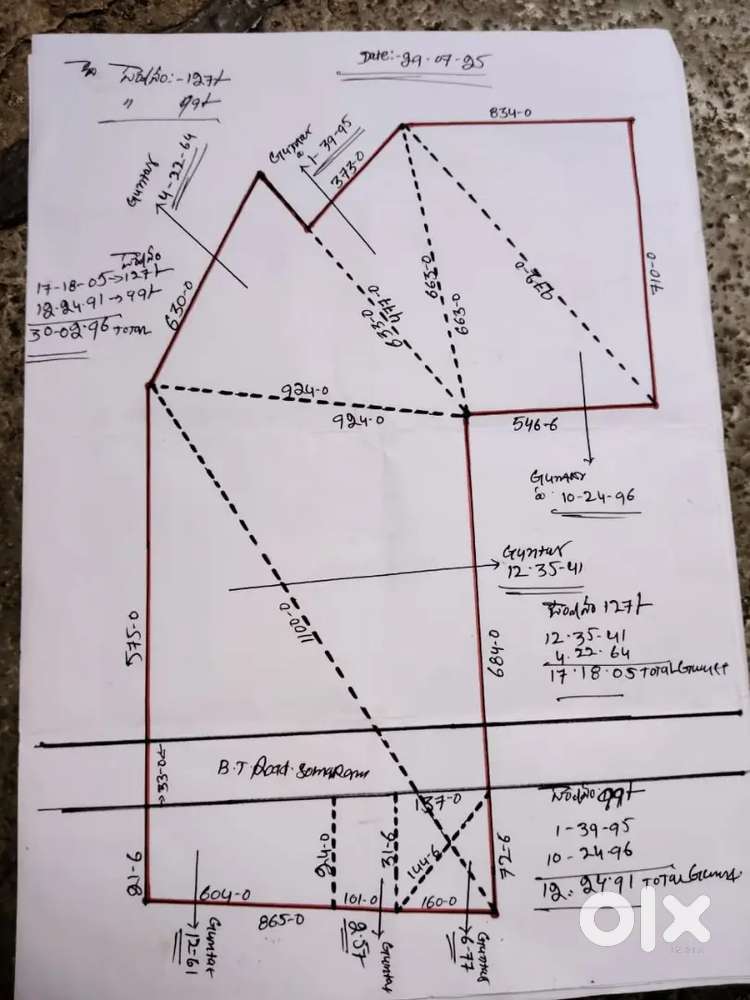 Date:-29-07-25
:-127/
" 99/
Guntas
4-22-64
Guntas
1-39-95
373-0
834-0
710-0
972-0
663-0
663-0
477-0
653-0
630-0
17-18-05→127/
12.24.91→99/
30-02.96 TOTAL
924-0
924-0
546-6
Guntas
10-24-96
Guntas
12.35-41
1100-0
575-0
684-0
127/
12.35-41
4.22.64
17.18.05 Total Guntas
B.T Road Somaram
33-0
137-0
99/
1-39-95
10-24-96
12.24.91 TOTAL Guntas
21-6
24-0
31-6
144-6
72-6
604-0
865-0
101-0
160-0
Guntas
12-61
Guntas
2.57
Guntas
6-77
olx